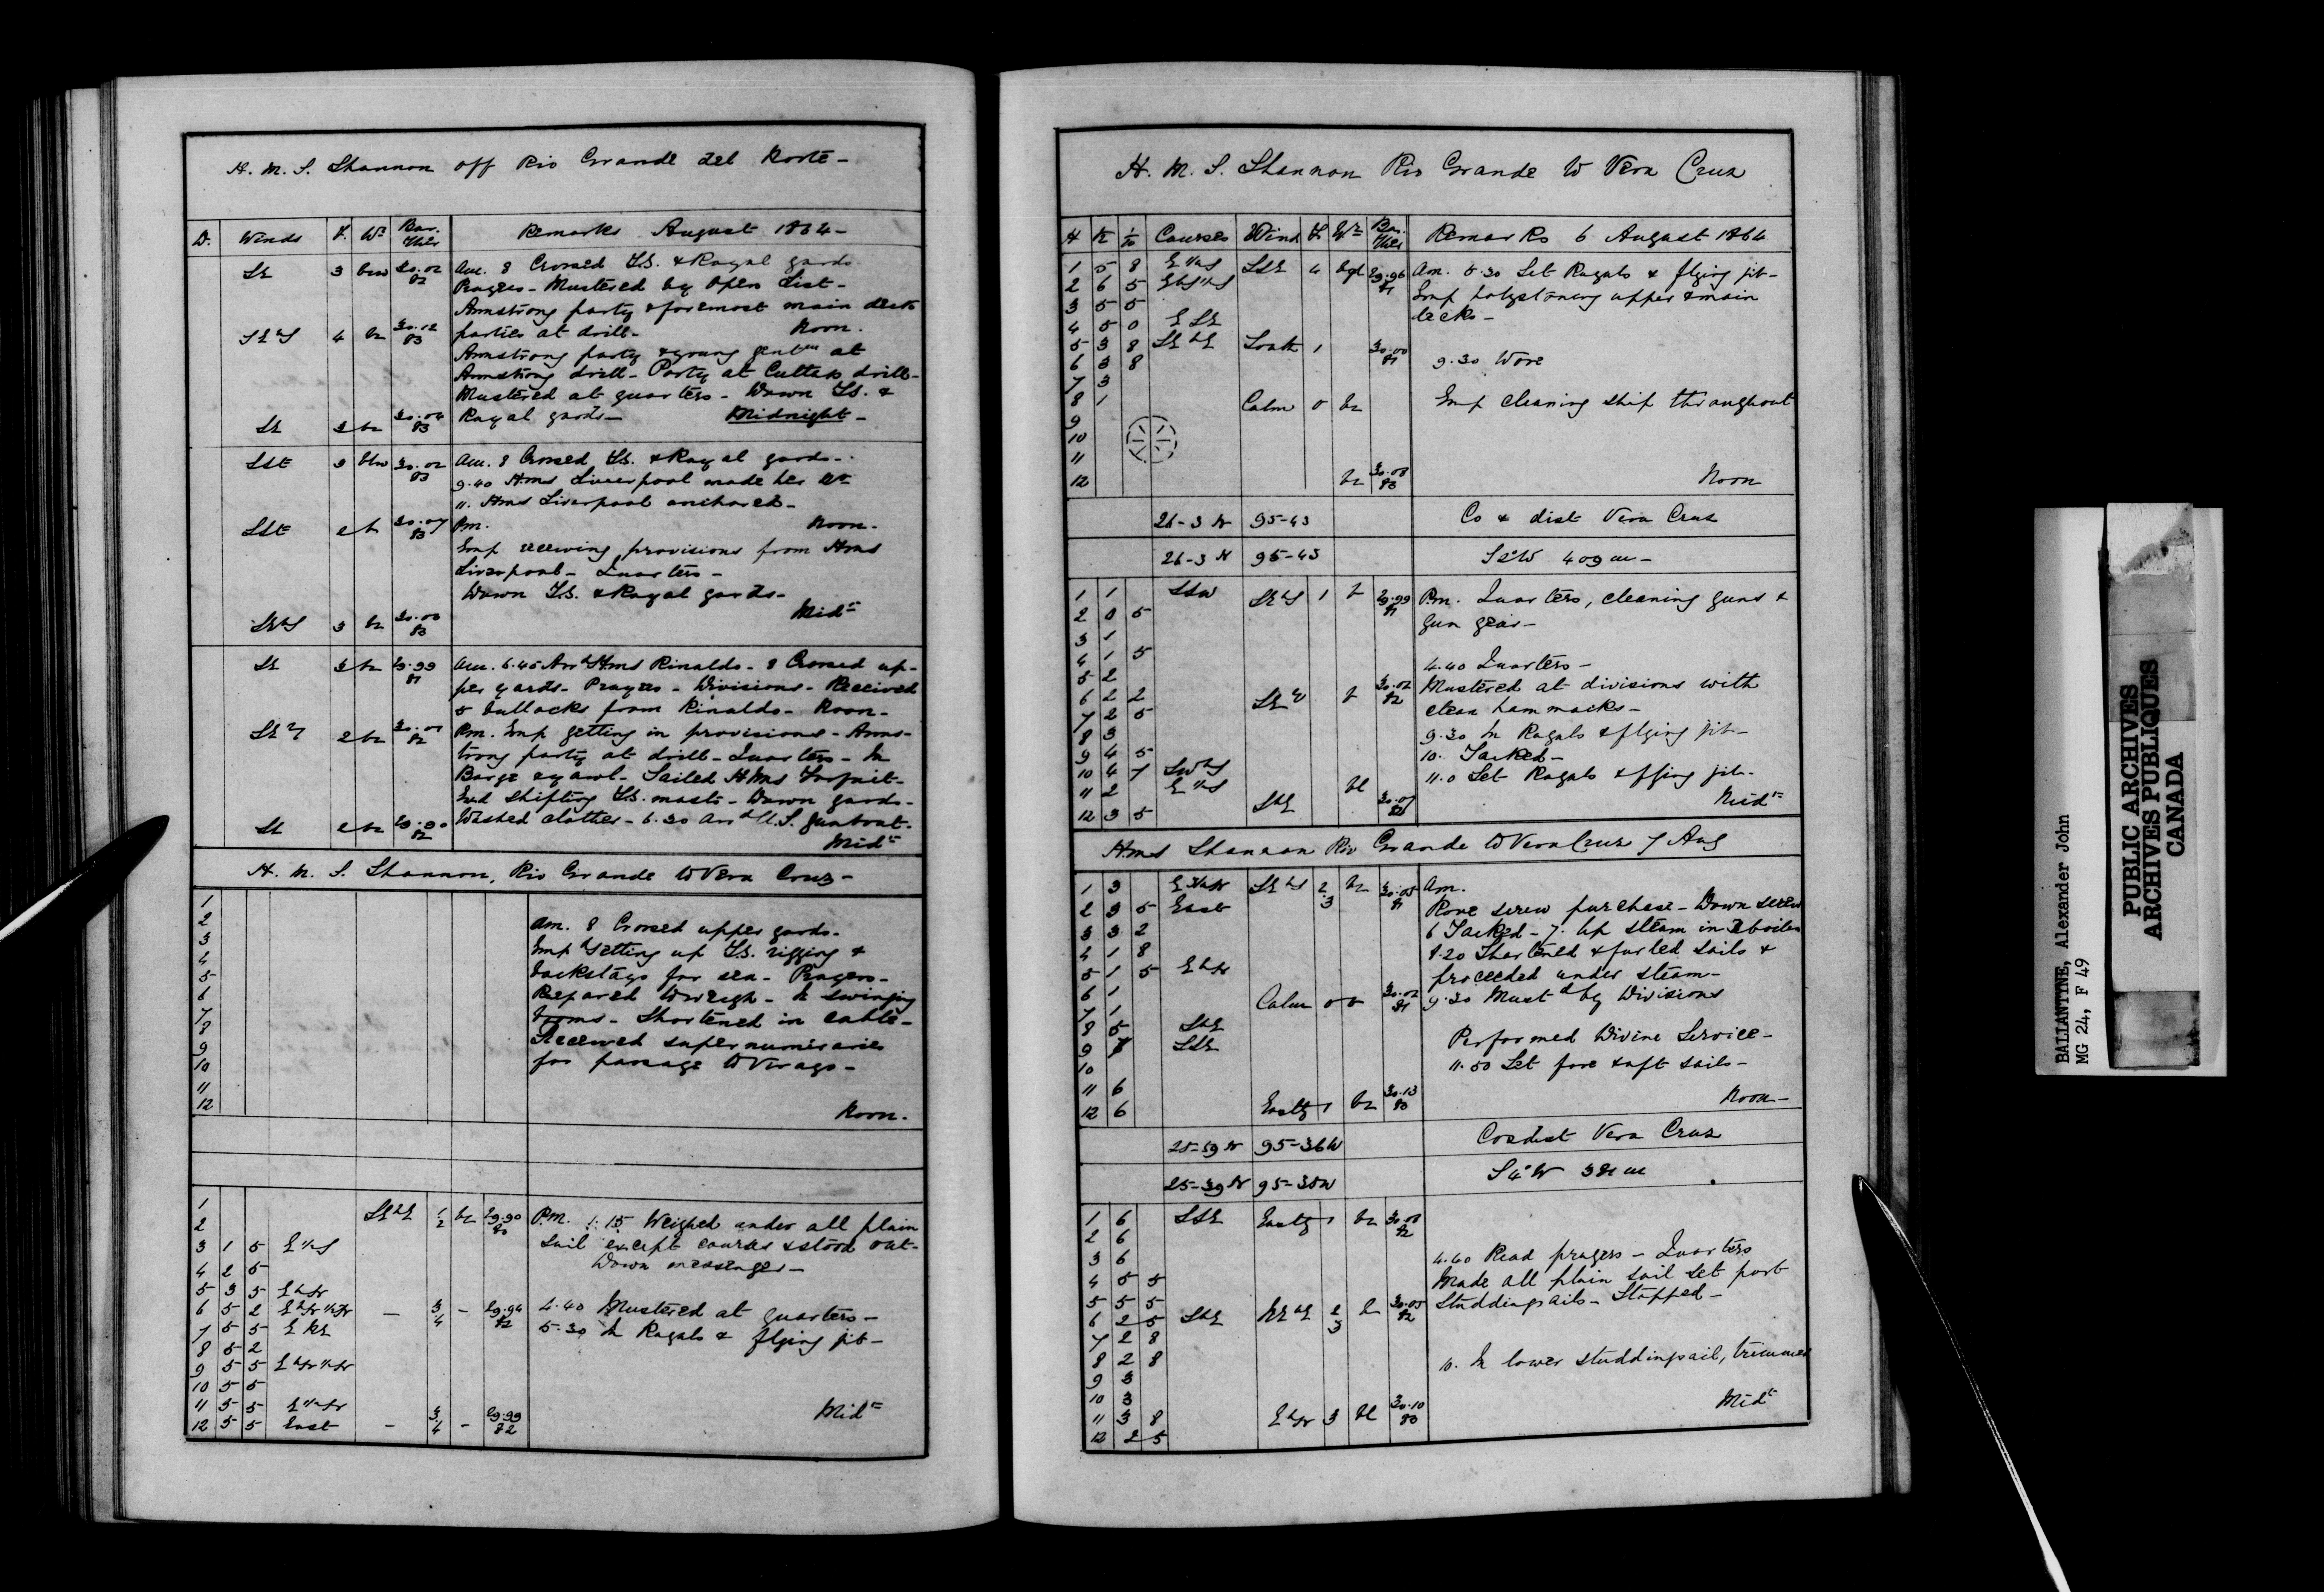 H. M. S. Shannon off Rio Grande del Norte -
D. Winds F. Wr Bar. Ther Remarks August 1864 -
SE 3 bcw 30.02 82 Am. 8 Crossed T.S. & Royal yards
Prayers - Mustered by Open List -
Armstrong party & foremost main deck
SE b S 4 bc 30.12 83 parties at drill - Noon.
Armstrong party & young gentn at
Armstrong drill - Party at Cutlass drill -
Mustered at quarters - Down T.S. &
SE 3 bc 30.04 83 Royal yards - Midnight -
SSE 3 bcw 30.02 83 Am. 8 Crossed T.S. & Royal yards -
9.40 Hms Liverpool made her No
11. Hms Liverpool anchored -
SSE 2 b 30.07 83 Pm. Noon -
Emp receiving provisions from Hms
Liverpool - Quarters -
Down T.S. & Royal yards -
SE b S 3 bc 30.00 83 Midt
SE 3 bc 29.99 81 Am. 6.45 Arrd Hms Rinaldo - 8 Crossed up-
per yards - Prayers - Divisions - Received
5 bullocks from Rinaldo - Noon -
2 bc 82 Pm. Emp getting in provisions - Arms-
trong party at drill - Quarters - In
Barge & yawl - Sailed H Ms
Emd shifting T.S. masts - Down yards -
SE 2 bc 82 Washed clothes - 6.30 arrd U.S. gunboat -
Midt
H. M. S. Shannon, Rio Grande to Vera Cruz -
1
2 Am. 8 Crossed upper yards -
3 Emp setting up T.S. rigging &
4 backstays for sea - Prayers -
5 Prepared to weigh - In swinging
6 booms - Shortened in cable -
7 Received supernumeraries
8 for passage to Virago -
9
10
11
12 Noon.
1 SE b E 1/2 bc 29.90 80 P.M. 1.15 Weighed under all plain
2 sail except courses & stood out -
3 1 5 E 1/2 S Down messenger -
4 2 5
5 3 5 E b N
6 5 2 E b N 1/2 N - 3/4 - 29.94 82 4.40 Mustered at quarters -
7 5 5 E N E 5.30 In Royals & flying jib -
8 5 2
9 5 5 E b N 1/2 N
10 5 5
11 5 5 E 1/2 N
12 5 5 East - 3/4 - 29.99 82 Midt
H. M. S. Shannon Rio Grande to Vera Cruz
H K 1/10 Courses Wind F Wr Bar. Ther Remarks 6 August 1864
1 5 8 E 1/2 S SSE 4 29.96 81 Am. 5.30 Set Royals & flying jib -
2 6 5 E b S 1/2 S Emp holystoning upper & main
3 5 5 decks -
4 5 0 E S E
5 3 8 SE b E South 1 30.00 81
6 3 8 9.30 Wore
7 3
8 1 Calm 0 bc Emp cleaning ship throughout
9
10
11
12 bc 30.08 83 Noon
26-3 N 95-43 Co & dist Vera Cruz
26-3 N 95-43 S 2° W 409 m -
1 1 SSW SE b S 1 b 29.99 81 Pm. Quarters, cleaning guns &
2 0 5 gun gear -
3 1
4 1 5 4.40 Quarters -
5 2 Mustered at divisions with
6 2 2 b 30.02 82 clean hammocks -
7 2 5
8 3 9.30 In Royals & flying jib -
9 4 5 10. Tacked -
10 4 7 SW b S 11.0 Set Royals & flying jib -
11 2 E 1/2 S bc
12 3 5 S b E 30.07 Midt
Hms Shannon Rio Grande to Vera Cruz 7 Aug
1 3 SE b S 2/3 bc 30.05 81 Am.
2 3 5 East Rove screw purchase - Down screw
3 3 2 6 Tacked - 7. Up steam in boilers
4 1 8 8.20 Shortened & furled sails &
5 1 5 E b N proceeded under steam -
6 1 Calm 0 30.02 81 9.30 Mustd by Divisions
7 1
8 5 S b E Performed Divine Service -
9 7 SSE
10 11.50 Set fore & aft sails -
11 6
12 6 Eastly 1 bc 30.13 83 Noon -
25-59 N 95-36 W Co & dist Vera Cruz
25-39 N 95-35 W S 4° W 381 m
1 6 SSE Eastly 1 bc 30.08 82
2 6
3 6 4.40 Read prayers - Quarters
4 5 5 Made all plain sail set port
5 5 5 Studdingsails - Stopped -
6 2 5 S b E NE b E 2/3 bc 30.05 82
7 2 8
8 2 8 10. In lower studdingsail, trimmed
9 3
10 3 Midt
11 3 8 E b N 3 bc 30.10 83
12 2 5
PUBLIC ARCHIVES
ARCHIVES PUBLIQUES
CANADA
BALLANTINE, Alexander John
MG 24, F 49